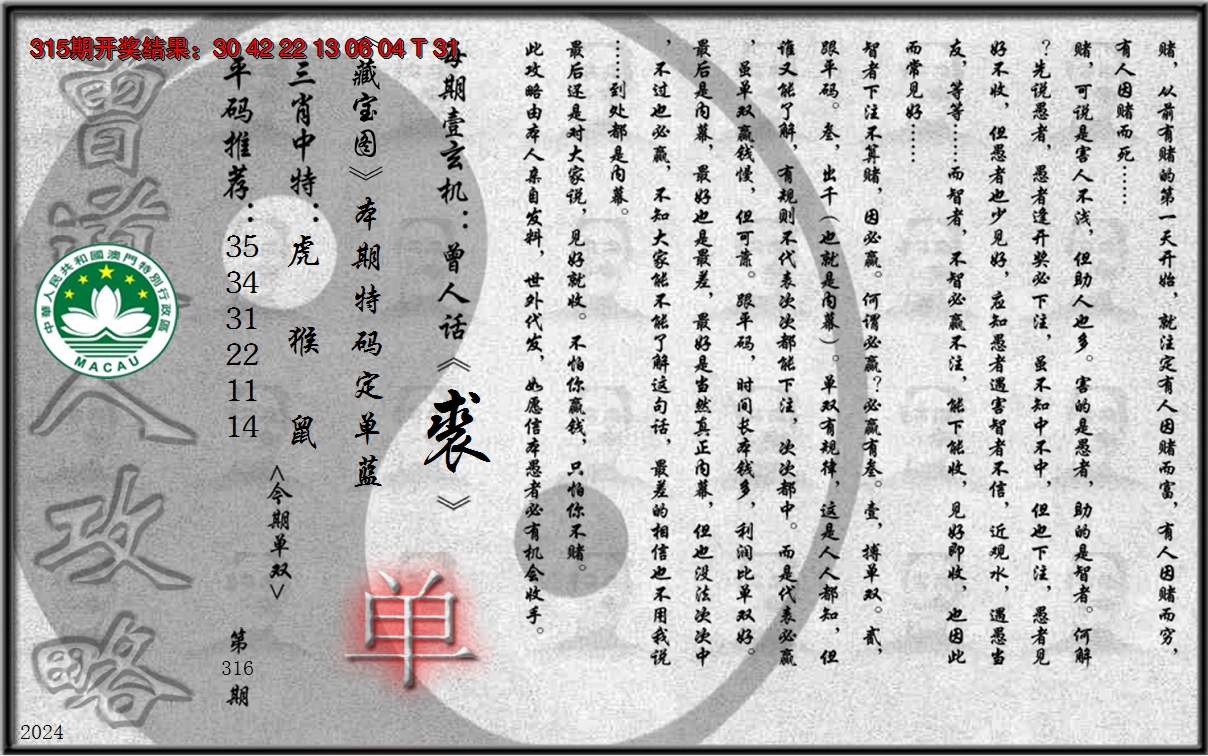 315期开奖结果：30 42 22 13 06 04 T 31
赌，从前有赌的第一天开始，就注定有人因赌而富，有人因赌而穷，
有人因赌而死……
赌，可说是害人不浅，但助人也多。害的是愚者，助的是智者。何解
？先说愚者，愚者逢开奖必下注，虽不知中不中，但也下注，愚者见
好不收，但愚者也少见好，应知愚者遇害智者不信，近观水，遇愚当
友，等等……而智者，不智必赢不注，能下能收，见好即收，也因此
而常见好……
智者下注不算赌，因必赢。何谓必赢？必赢有叁。壹，搏单双。贰，
跟平码。叁，出千（也就是内幕）。单双有规律，这是人人都知，但
谁又能了解，有规则不代表次次都能下注，次次都中。而是代表必赢
，虽单双赢钱慢，但可靠。跟平码，时间长本钱多，利润比单双好。
最后是内幕，最好也是最差，最好是当然真正内幕，但也没法次次中
，不过也必赢，不知大家能不能了解这句话，最差的相信也不用我说
……到处都是内幕。
最后还是对大家说，见好就收。不怕你赢钱，只怕你不赌。
此攻略由本人亲自发料，世外代发，如愿信本愚者必有机会收手。
每期壹玄机：曾人话《裘》
《藏宝图》本期特码定单蓝
单
三肖中特：虎 猴 鼠
<今期单双>
平码推荐：35 34 31 22 11 14
第316期
曾道人攻略
中華人民共和國澳門特別行政區
MACAU
2024